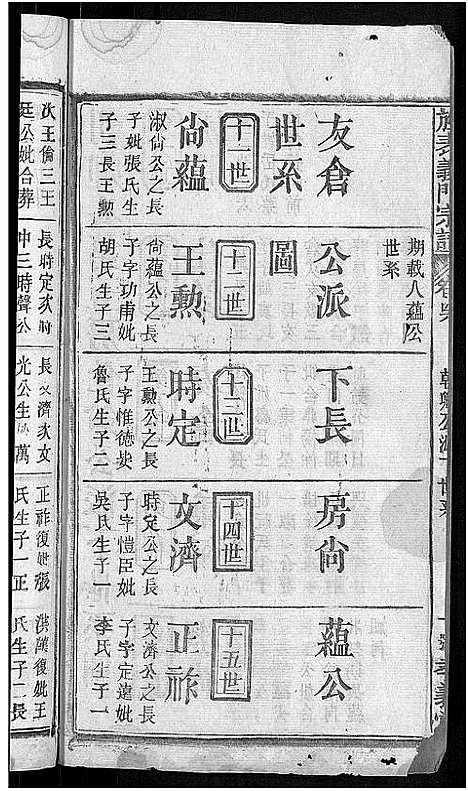 旌表義門宗譜
卷
世系
期載人蘊公
世系
友倉公派下長房尚蘊公
世系圖
十一世
十二世
十三世
十四世
十五世
尚蘊
淑尚公之長
子妣張氏生
子三長王勲
王勲
尚蘊公之長
子字功甫妣
胡氏生子三
時定
王勲公之長
子字惟德娶
魯氏生子二
文濟
時定公之長
子字愷臣妣
吳氏生子一
正祚
文濟公之長
子字定遠妣
李氏生子一
次王倫三王
廷公妣合葬
長時定次時
中三時聲公
長文濟次文
光公生 萬
正祚復妣張
氏生子一正
洪謨復妣王
氏生子二長